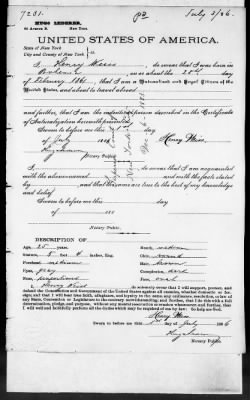 7281.
HUGO LEDERER,
New York.
July 3/86
UNITED STATES OF AMERICA.
State of New York
City and County of New York
I Henry Weiss do swear that I was born in
Bohemia on or about the 20th day
of February 1861 that I am a Naturalized and Legal Citizen of the
United States, and about to travel abroad
and further, that I am the identical person described in the Certificate
of Naturalization herewith presented.
Sworn to before me this
day
of July 1886
Henry Weiss.
Notary Public
I do swear, that I am acquainted
with the above named and with the facts stated
by and that the same are true to the best of my knowledge
and belief.
Sworn to before me this day
of 188
DESCRIPTION OF
Age 25 years
Stature 5 feet inches, Eng.
Forehead medium
Eyes gray
Nose proportioned
Mouth, medium
Chin, round
Hair, brown
Complexion, dark
Face, oval
I Henry Weiss do solemnly swear that I will support, protect, and
defend the Constitution and Government of the United States against all enemies, whether domestic or foreign,
and that I will bear true faith, allegiance, and loyalty to the same, any ordinance, resolution, or law of
any State, Convention or Legislature to the contrary notwithstanding; and further, that I do this with a full
determination, pledge and purpose, without any mental reservation or evasion whatsoever; and further, that
I will well and faithfully perform all the duties which may be required of me by law: So help me God.
Henry Weiss
Sworn to before me this day of July 1886
Notary Public